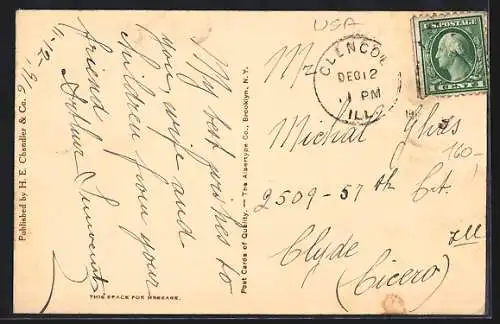 USA
My best wishes to
you, wife and
children from your
friend
Arthur
Published by H. E. Chandler & Co.
Post Cards of Quality. — The Albertype Co., Brooklyn, N.Y.
THIS SPACE FOR MESSAGE.
GLENCOE
DEC 12
1 PM
ILL.
U.S. POSTAGE
1 CENT 1
Mr
Michal
2509-57th Ct.
Clyde Ill
(Cicero)
160-